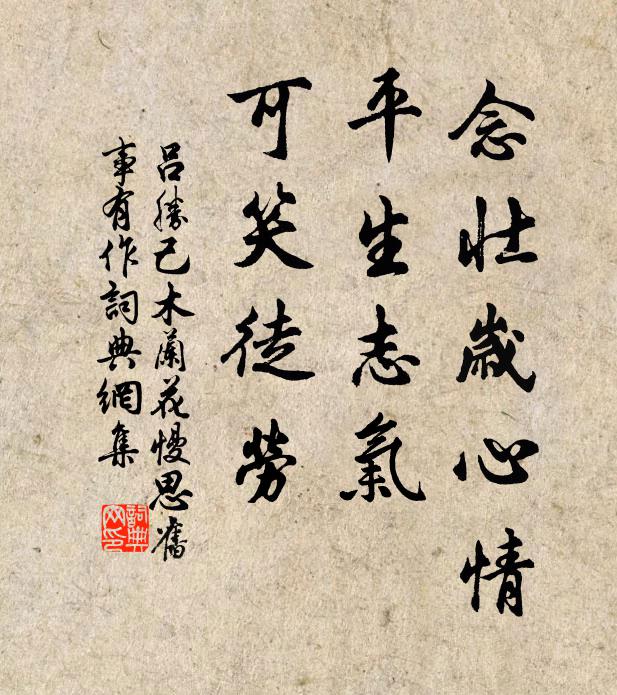 念壯歲心情
平生志氣
可笑徒勞
呂勝己木蘭花慢思舊
事有作詞典網集
詞典网印